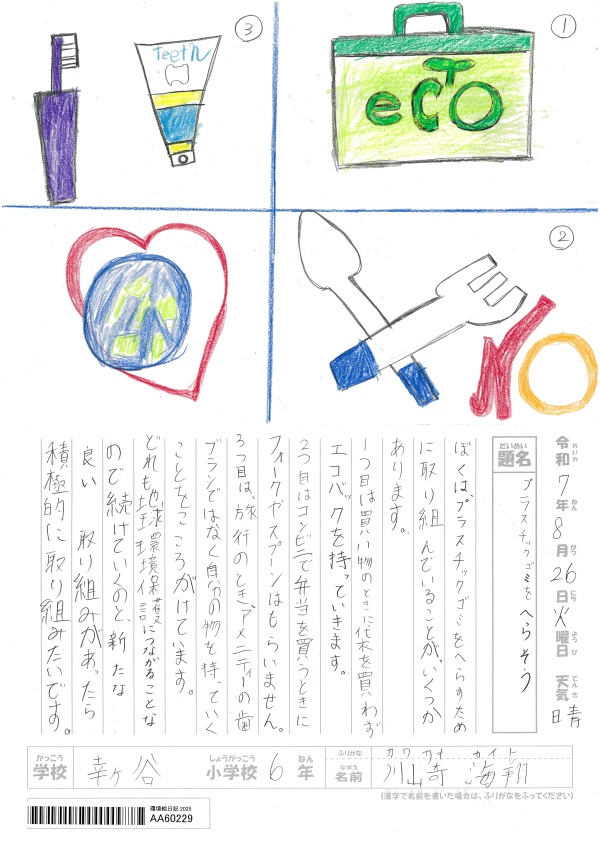 ③
Teeth
①
eCTO
②
NO
令和7年8月26日火曜日 天気 晴
れいわ ねん がつ にち ようび てんき
だいめい
題名
プラスチックゴミをへらそう
ぼくは、プラスチックゴミをへらすため
に取り組んでいることが、いくつか
あります。
1つ目は買い物のときに代衣を買わず
エコバックを持っていきます。
2つ目はコンビニで弁当を買うときに
フォークやスプーンはもらいません。
3つ目は、旅行のとき、アメニティーの歯
ブラシではなく自分の物を持っていく
ことをこころがけています。
どれも地球環境保護につながることな
ので続けていくのと、新たな
良い 取り組みがあったら
積極的に取り組みたいです。
がっこう しょうがっこう ねん
学校 幸ケ谷 小学校 6年
ふりがな カワサキ カイト
なまえ
名前 川崎 海翔
(漢字で名前を書いた場合は、ふりがなをふってください)
環境絵日記 2025
AA60229